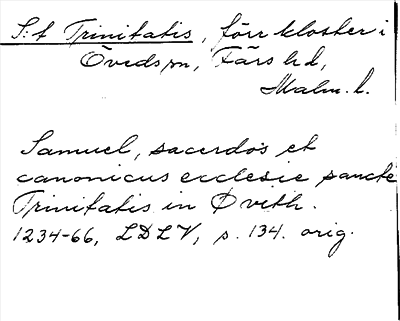 S:t Trinitatis, förr kloster i
Övedssn, Färs hd,
Malm. l.
Samuel, sacerdos et
canonicus ecclesie sancte
Trinitatis in Øveth.
1234-66, LDLV, s. 134. orig.